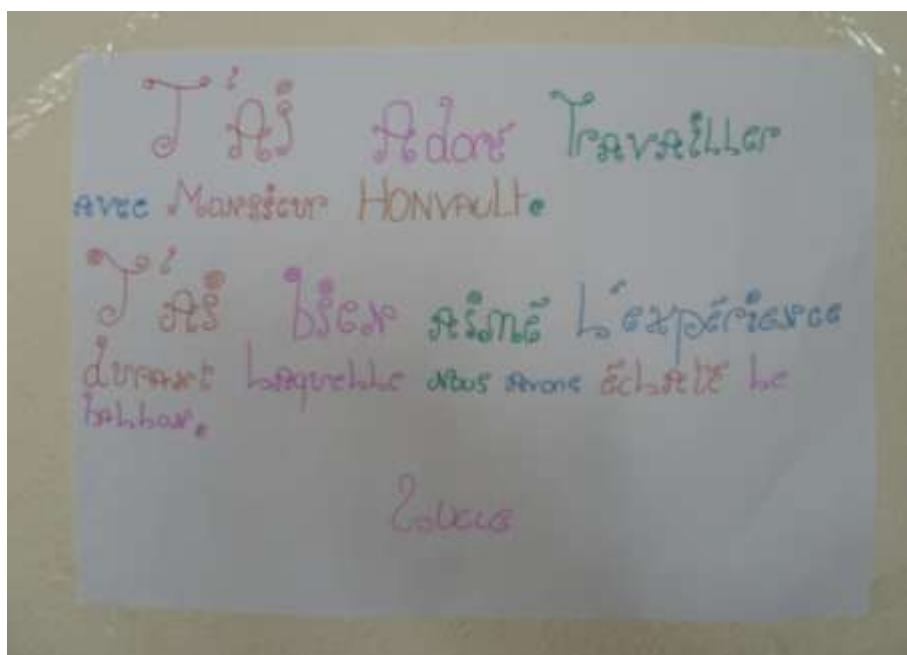 J'Ai Adoré Travailler
avec Monsieur HONVAULT.
J'Ai bien aimé L'expérience
durant Laquelle Nous Avons éclaté Le
ballon.